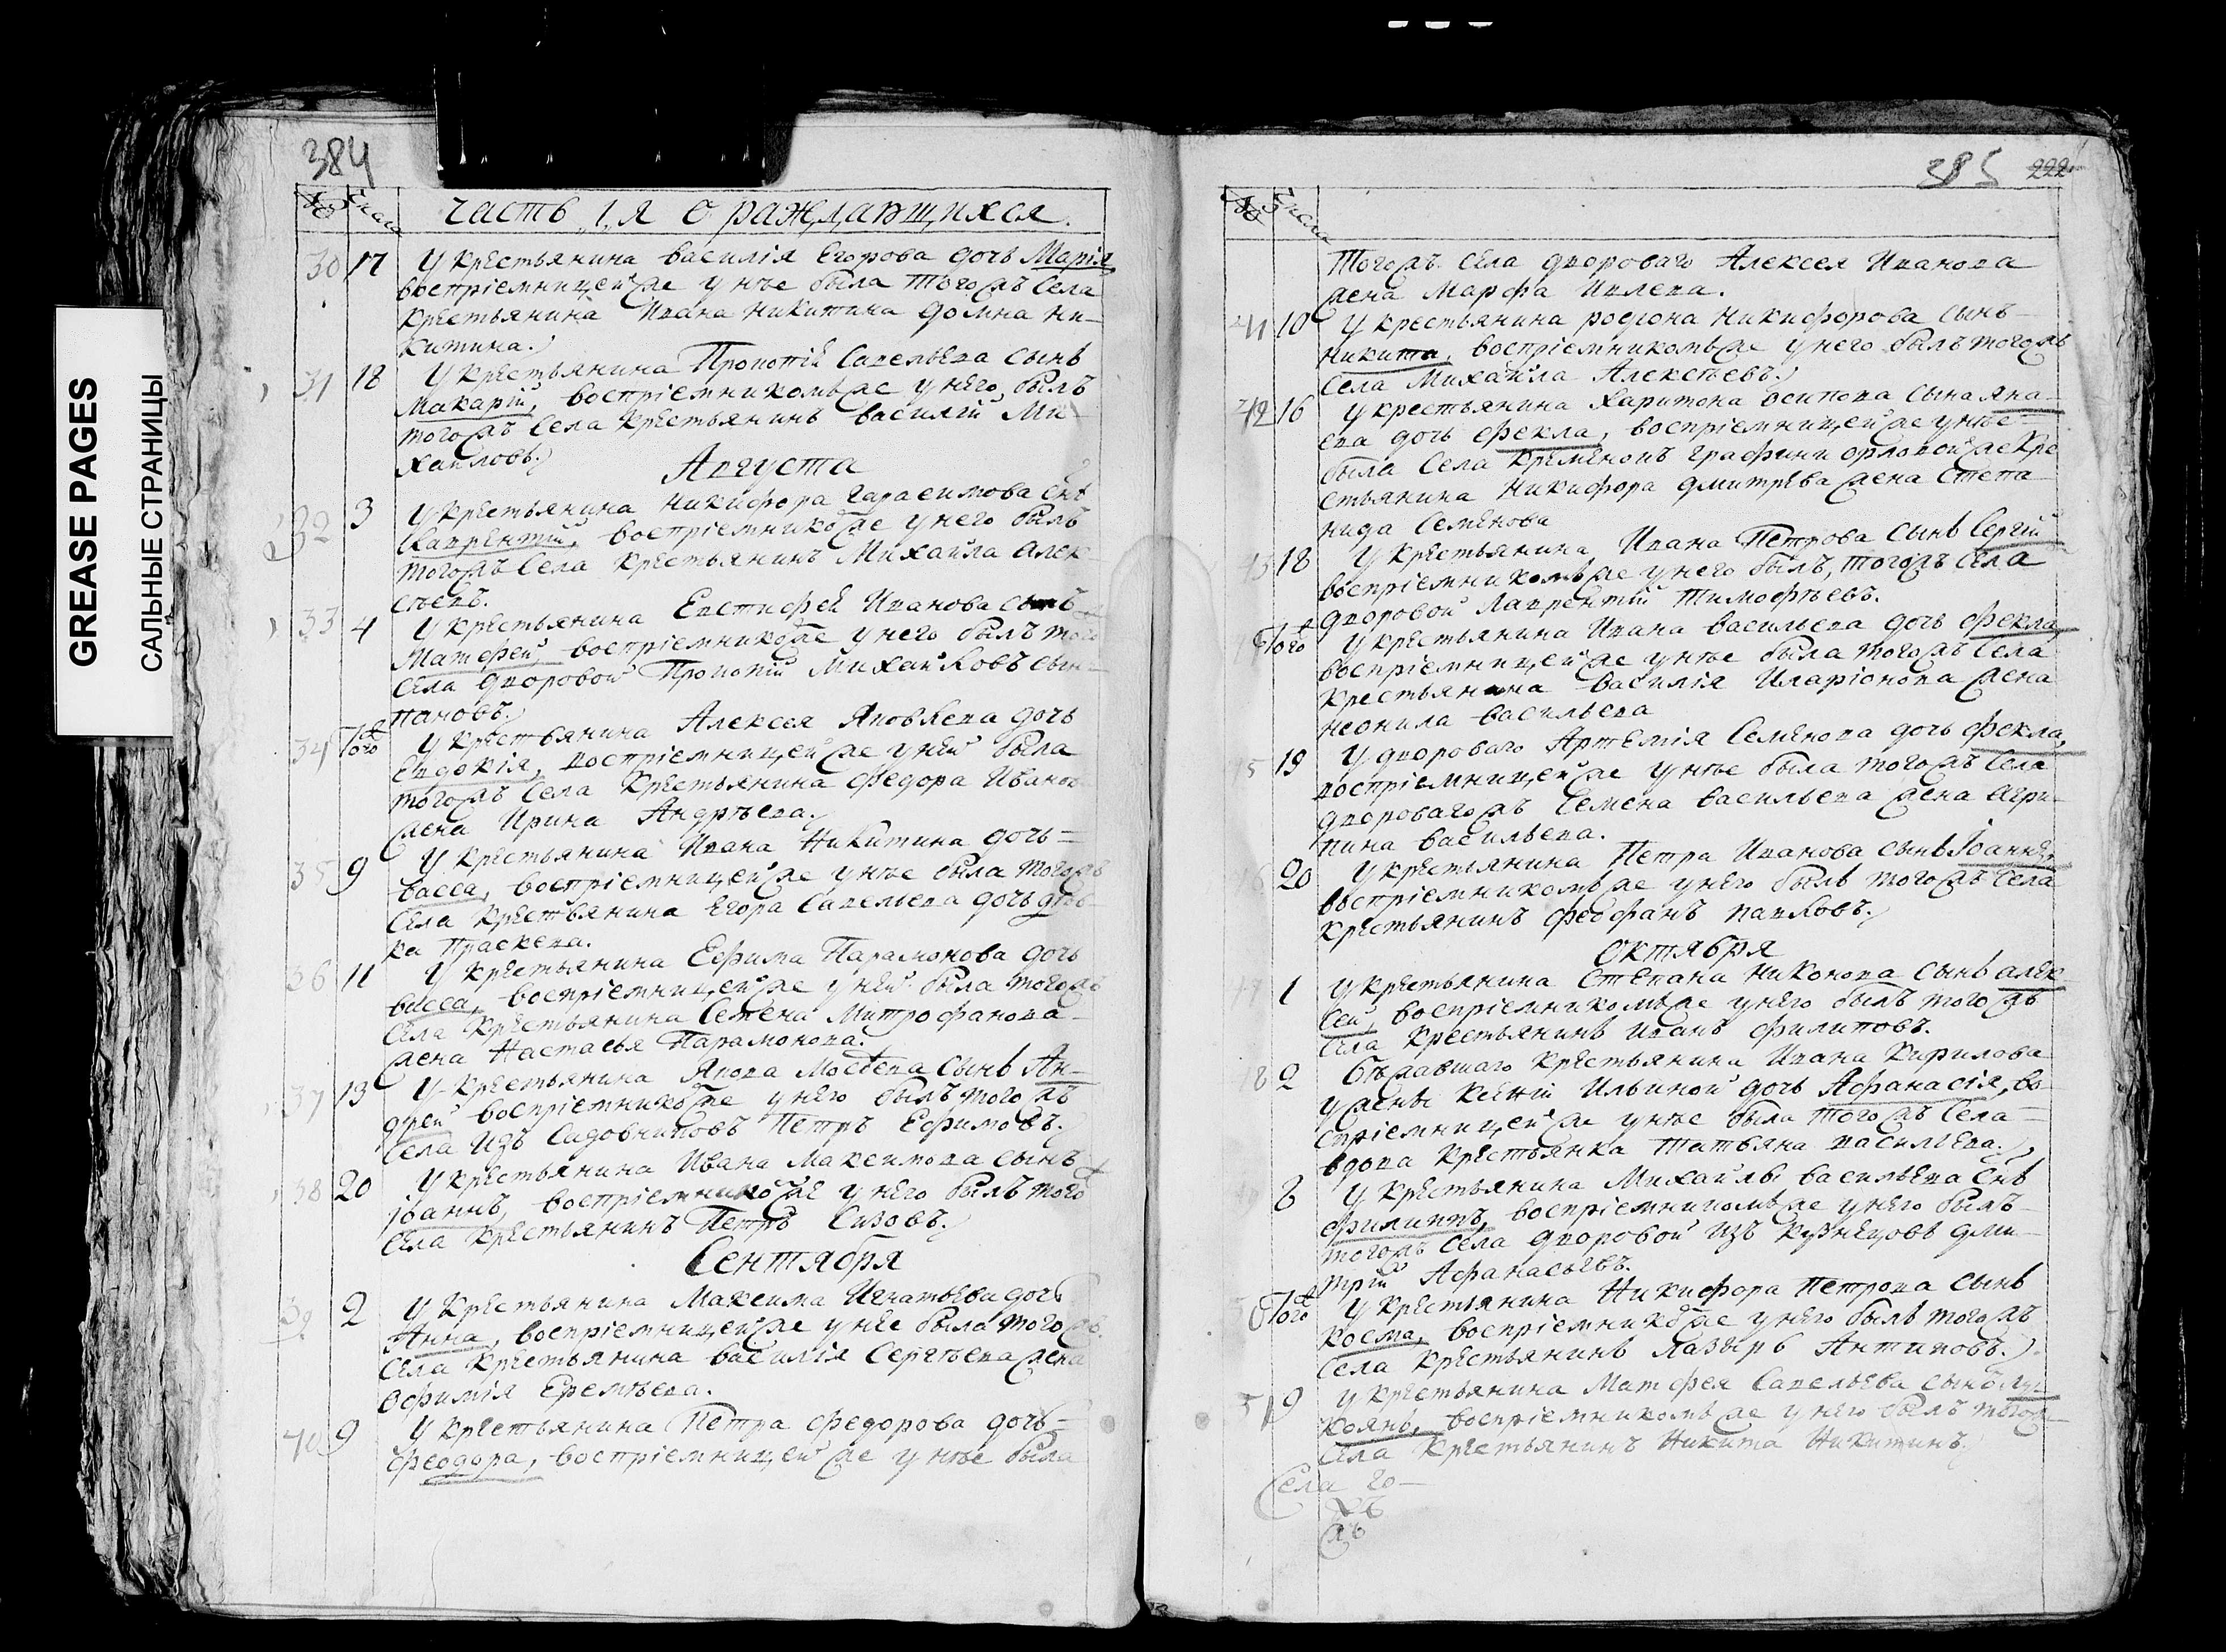 GREASE PAGES
САЛЬНЫЕ СТРАНИЦЫ
384
№ Число
Часть 1,я о раждающихся.
30 17 У крестьянина Василія Егорова дочь Марія
воспріемницей же у нѣе была тогожъ села
крестьянина Ивана Никитина Домна Ни-
китина.
31 18 У крестьянина Прокопій Савельева сынъ
Макарій, воспріемникомъ же у него былъ
тогожъ села крестьянинъ Василій Ми-
хаиловъ.
Августа
32 3 У крестьянина Никифора Гарасимова снъ
Лаврентій, воспріемнико же у него былъ
тогожъ села крестьянинъ Михайла Алек
сѣевъ.
33 4 У крестьянина Евстифей Иванова сынъ
Матфей воспріемнико же у него былъ того
села дворовой Прокопій Михайловъ сын
пановъ.
34 Тогоже У крестьянина Алексея Яковлева дочь
Евдокія, воспріемницей же у ней была
тогожъ села крестьянина Федора Иванов
жена Ирина Андрѣева.
35 9 У крестьянина Ивана Никитина дочь=
Васса, воспріемницей же у нѣе была тогожъ
села крестьянина Егора Савельева дочь дѣв-
ка Праскева.
36 11 У крестьянина Ефима Парамонова дочь
Васса, воспріемницей же у ней была тогожъ
села крестьянина Семена Митрофанова
жена Настасья Парамонова.
37 13 У крестьянина Якова Мосѣева сынъ Ан-
дрей воспріемнико же у него былъ тогожъ
села изъ садовниковъ Петръ Ефимовъ.
38 20 У крестьянина Ивана Максимова сынъ
Іоаннъ, воспріемнико же у него былъ того
села крестьянинъ Петръ Сизовъ.
Сентября
39 2 У крестьянина Максима Игнатьева дочь
Анна, воспріемницей же у нѣе была тогожъ
села крестьянина Василія Сергѣева жена
Офимія Еремѣева.
40 9 У крестьянина Петра Федорова дочь=
Феодора, воспріемницей же у нѣе была
385 222
№ Число
тогожъ села двороваго Алексея Иванова
жена Марфа Ивлева.
41 10 У крестьянина Родіона Никифорова сынъ
Никита, воспріемникомъ же у него былъ тогожъ
села Михайла Алексѣевъ.
42 16 У крестьянина Харитона Осипова сына Яко-
ва дочь Фекла, воспріемницей же у нѣе
была села Кременокъ графини Орловой же кре
стьянина Никифора Дмитрева жена Степа
нида Семенова
43 18 У крестьянина Ивана Петрова сынъ Сергій
воспріемникомъ же у него былъ, тогожъ села
дворовой Лаврентій Тимофѣевъ.
Тогоже У крестьянина Ивана Васильева дочь Фекла,
воспріемницей же у нѣе была тогожъ села
крестьянина Василія Иларіонова жена
Неонила Васильева
45 19 У двороваго Артемія Семенова дочь Фекла,
воспріемницей же у нѣе была тогожъ села
двороваго жъ Семена Васильева жена Агри-
пина Васильева.
6 20 У крестьянина Петра Иванова сынъ Іоаннъ,
воспріемникомъ же у него былъ тогожъ села
крестьянинъ Феофанъ Павловъ.
Октября
47 1 У крестьянина Степана Никонова сынъ Алек
сей, воспріемникомъ же у него былъ тогожъ
села крестьянинъ Иванъ Филиповъ.
48 2 Бѣжавшаго крестьянина Ивана Кирилова
у жены Ксеніи Ильиной дочь Афанасія, во-
спріемницей же у нѣе была тогожъ села=
вдова крестьянка Татьяна Васильева.
8 У крестьянина Михайлы Васильева снъ
Филиппъ, воспріемникомъ же у него былъ
тогожъ села дворовой изъ кузнецовъ Дми-
трій Афанасьевъ.
50 Тогоже У крестьянина Никифора Петрова сынъ
Косма, воспріемнико же у него былъ тогожъ
села крестьянинъ Лазырь Антиповъ.
51 9 У крестьянина Матфея Савельева сынъ Лу
кіянъ, воспріемникомъ же у него былъ тогожъ
села крестьянинъ Никита Никитинъ.
Села Го-